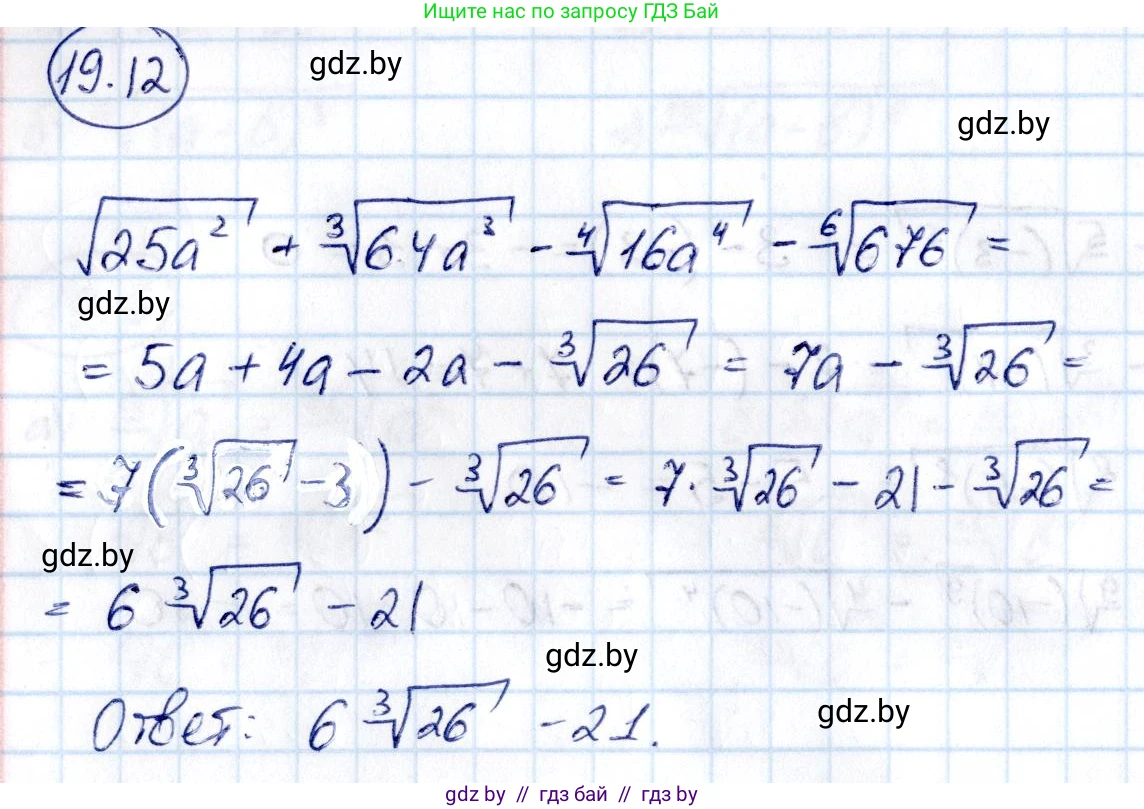 Ищите нас по запросу ГДЗ Бай
19.12
gdz.by
gdz.by
√(25a²) + ∛(64a³) - ∜(16a⁴) - ⁶√(676) =
gdz.by
= 5a + 4a - 2a - ∛(26) = 7a - ∛(26) =
= 7(∛(26) - 3) - ∛(26) = 7·∛(26) - 21 - ∛(26) =
gdz.by
= 6 ∛(26) - 21
gdz.by
gdz.by
Ответ: 6 ∛(26) - 21.
gdz by // гдз бай // гдз by